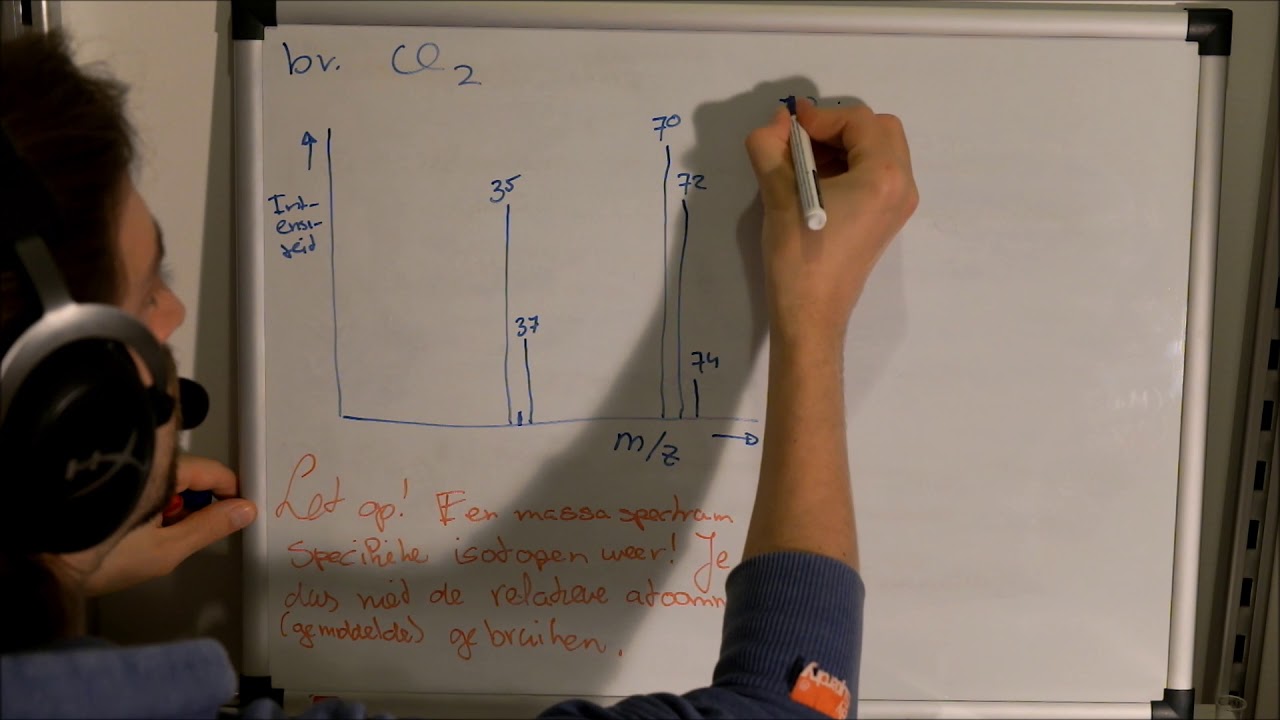 bv. Cl₂
70
35
72
Int-
ensi-
teit
37
74
m/z →
Let op! Een massaspectrum
specifieke isotopen weer! Je
dus niet de relatieve atoomm
(gemiddelde) gebruiken.